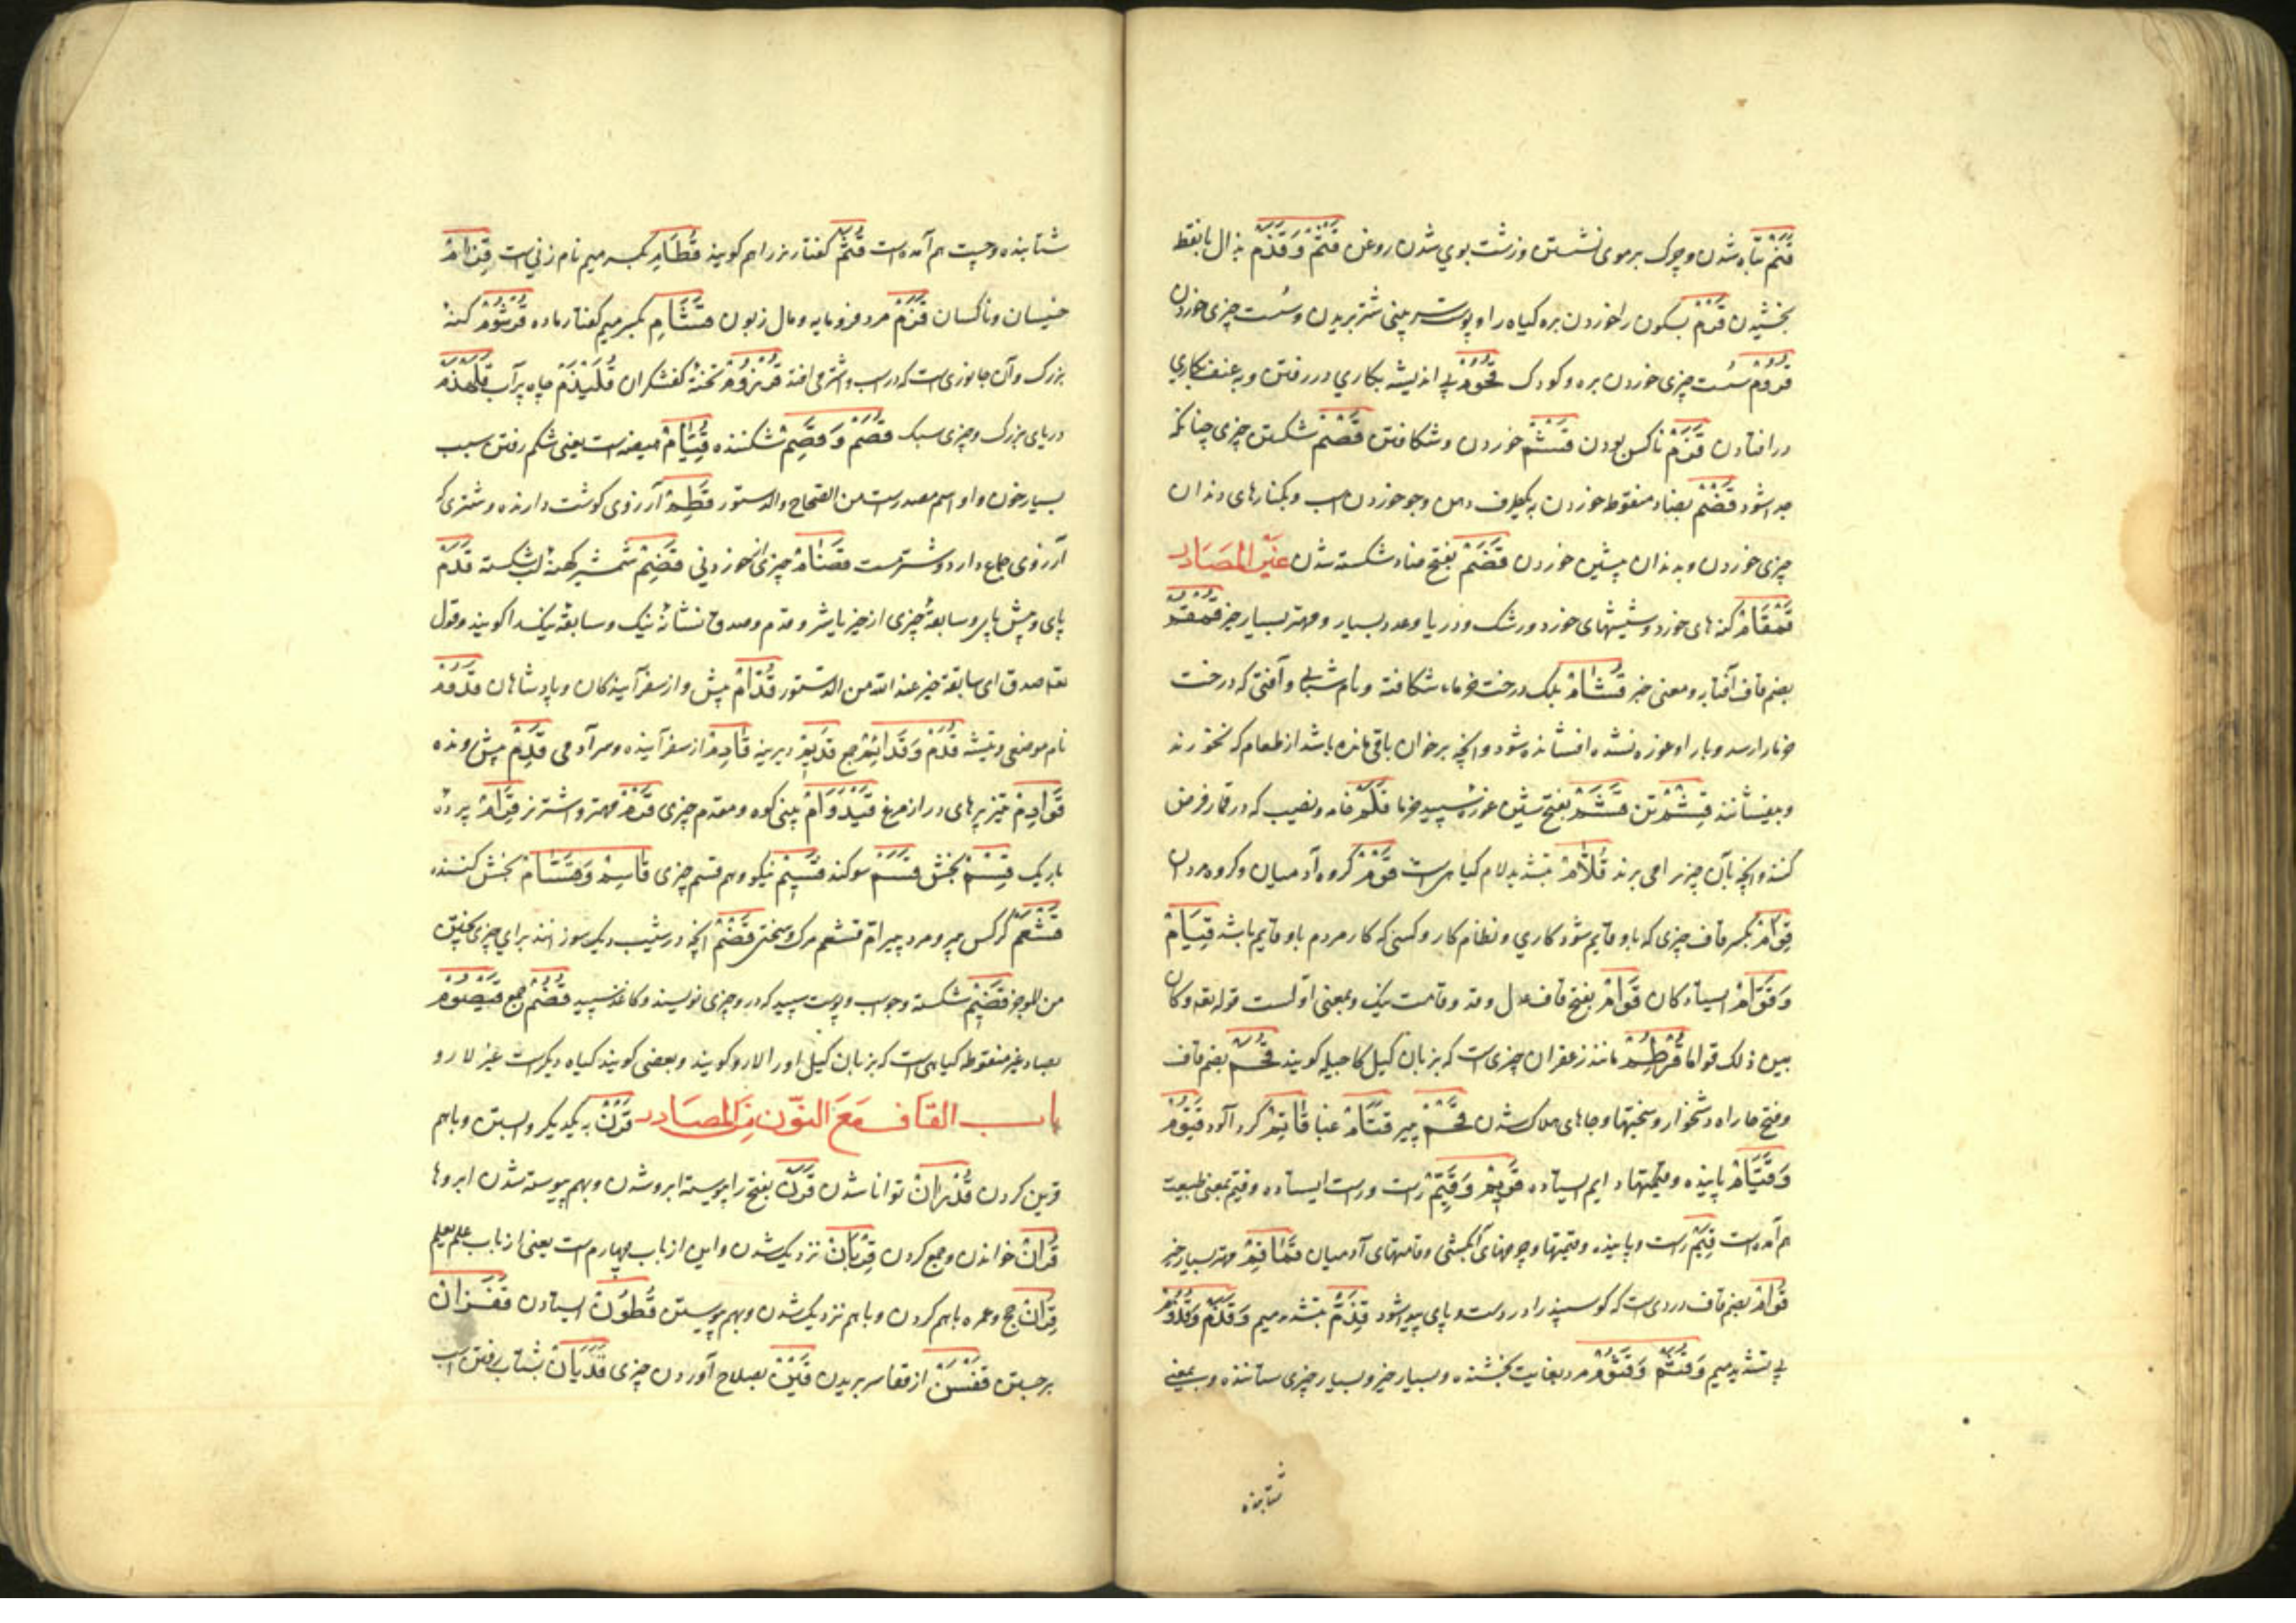 قَنَمٌ تباه شدن و چرک بر موی نشستن و زشت بوی شدن روغن قَثْمٌ وَقَذْمٌ بذال بانقط
بخشیدن قَرْمٌ بسکون را خوردن بره گیاه را و پوست سر بینی شتر بریدن و سُست چیزی خوردن
قُرُومٌ سُست چیزی خوردن بره و کودک قُحُومٌ بی اندیشه بکاری در رفتن و به عنف بکاری
در افتادن قَزَمٌ ناکس بودن قَشْمٌ خوردن و شکافتن قَصْمٌ شکستن چیزی چنانکه
جدا شود قَضْمٌ بضاد منقوط خوردن به یکطرف دهن و جو خوردن اسب و بکنارهای دندان
چیزی خوردن و بدندان پیشین خوردن قَصَمٌ بفتح صاد شکسته شدن غَيْرُ المَصَادِر
قَمْقَامٌ کنه های خورد و شپشهای خورد و رشک و دریا و عدد بسیار و مهتر بسیار خیر قُمْقُمٌ
بضم قاف آفتابه و معنی خبر قُشَامٌ بلک درخت خرما شکافته و نام شبانی و آفتی که درخت
خرما را رسد و بار او غوزه نشده افشانده شود و آنچه بر خوان باقی مانده باشد از طعام که نخورند
و بیفشانند قِشْمٌ تن قَشَمٌ بفتح شین غوزه سپید خرما قَلَمٌ خامه و نصیب که در قمار فرض
کنند و آنچه بآن چیز را می برند قُلَّامٌ بتشدید لام کیاهی است قَوْمٌ گروه آدمیان و گروه مردان
قِوَامٌ بکسر قاف چیزی که باو قایم شود کاری و نظام کار و کسی که کار مردم باو قایم باشد قِيَامٌ
وَقَوَّامٌ ایستادکان قَوَامٌ بفتح قاف عدل و قد و قامت نیک و بمعنی اولست قوله تعه و کان
بین ذلک قواما قُرْطُمٌ مانند زعفران چیزی است که بزبان گیل کاجیله کویند قُحَمٌ بضم قاف
و فتح حا راه دشخوار و سختیها و جاهای هلاک شدن قَحْمٌ پیر قَتَامٌ غبار قَاتِمٌ گرد آلود قَيُّومٌ
وَقَيَّامٌ پاینده و قیمتها دایم ایستاده قَوِيمٌ وَقَيِّمٌ راست و درست ایستاده و قیم بمعنی طبیعت
هم آمده است قِيَمٌ راست و پاینده و قیمتها و چوبهای آبکشی و قامتهای آدمیان قُمَاقِمٌ مهتر بسیار خیر
قُوَامٌ بضم قاف دردی است که کوسپند را در دست و پای پیدا شود قِذَمٌّ بتشدید میم وَقُذَمٌ وَقَذُومٌ
بی تشدید میم وَقُثَمٌ وَقَثُومٌ مرد بغایت بخشنده و بسیار خیر و بسیار چیزی ستاننده و بمعنی
شتابنده
شتابنده و چست هم آمده است قُثَمٌ کفتار نر را هم کویند قَطَامِ بکسر میم نام زنی است قِزَامٌ
خسیسان و ناکسان قَزَمٌ مرد فرومایه و مال زبون قَثَامِ بکسر میم کفتار ماده قُرْشُومٌ کنه
بزرک و آن جانوری است که در اسب و اشتر می افتد قُرْزُومٌ تخته کفشکران قَلَيْذَمٌ چاه پر آب قَلَهْذَمٌ
دریای بزرک و چیزی سبک قُصَمٌ وَقَصِمٌ شکننده قُيَامٌ هیضه است یعنی شکم رفتن بسبب
بسیار خوردن و او اسم مصدر است من الصحاح والدستور قَطِمٌ آرزوی کوشت دارنده و شتری که
آرزوی جماع دارد و شتر مست قَضَامٌ چیزی خوردنی قَضِمٌ شمشیر کهنه لب شکسته قَدَمٌ
پای و پیش پای و سابقهٔ چیزی از خیر یا شر و قدم و صدق نشانهٔ نیک و سابقهٔ نیک را کویند و قول
تعه صدق ای سابقة خیر عند الله من الدستور قُدَّامٌ پیش و از سفر آیندکان و پادشاهان قَدُومٌ
نام موضعی و تیشه قُدُمٌ وَقَدَائِمُ جمع قَدِيمٌ دیرینه قَادِمٌ از سفر آینده و سر آدمی قُدُمٌ پیش رونده
قَوَادِمُ تیز پرهای دراز مرغ قَيْدُوَامٌ بینی کوه و مقدم چیزی قَرْمٌ مهتر و اشتر نر قِرَامٌ پردهٔ
باریک قِسْمٌ بخش قَسَمٌ سوکند قَسِيمٌ نیکو و هم قسم چیزی قَاسِمٌ وَقَسَّامٌ بخش کننده
قَشْعَمٌ کرکس پیر و مرد پیر ام قشعم مرک و سختی قَضْمٌ آنچه در شیب دیک سوزانند برای چیزی پختن
من الموجز قَضِيمٌ شکسته و جو اسب و پوست سپید که درو چیزی نویسند و کاغذ سپید قُضُمٌ جمع قَيْصُومٌ
بصاد غیر منقوطه کیاهی است که بزبان گیل او را لارو کویند و بعضی کویند کیاه دیکرست غیر لارو
باب القاف مَعَ النّون مِنَ المَصَادِر قَرْنٌ به یکدیکر وابستن و باهم
قرین کردن قُدْرَانٌ توانا شدن قَرَنٌ بفتح را پیوسته ابرو شدن و بهم پیوسته شدن ابروها
قُرْآنٌ خواندن و جمع کردن قِرْبَانٌ نزدیک شدن و این از باب چهارم است یعنی از باب علم یعلم
قِرَانٌ حج و عمره باهم کردن و باهم نزدیک شدن و بهم پیوستن قُطُونٌ ایستادن قَفَزَانٌ
برجستن قَفْنٌ از قفا سر بریدن قَيْنٌ بصلاح آوردن چیزی قَدَيَانٌ بشتاب رفتن اسب